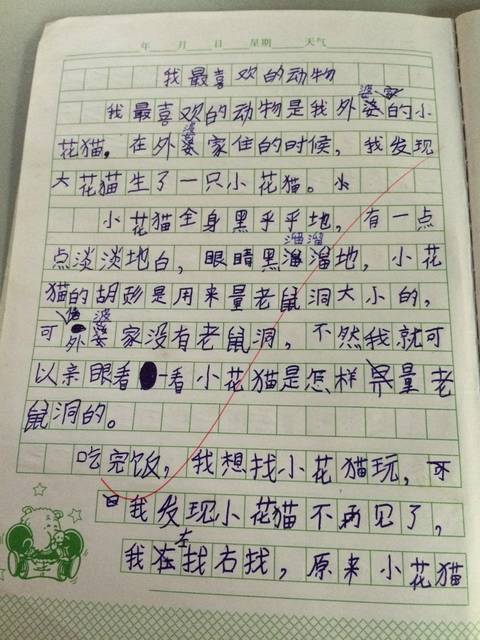 年 月 日 星期 天气
我最喜欢的动物
我最喜欢的动物是我外婆家的小
花猫。在外婆家住的时候，我发现
大花猫生了一只小花猫。
小花猫全身黑乎乎地，有一点
点淡淡地白，眼睛黑溜溜地，小花
猫的胡彭是用来量老鼠洞大小的，
可外婆家没有老鼠洞，不然我就可
以亲眼看一看小花猫是怎样量老
鼠洞的。
吃完饭，我想找小花猫玩，可
我发现小花猫不再见了，
我左找右找，原来小花猫